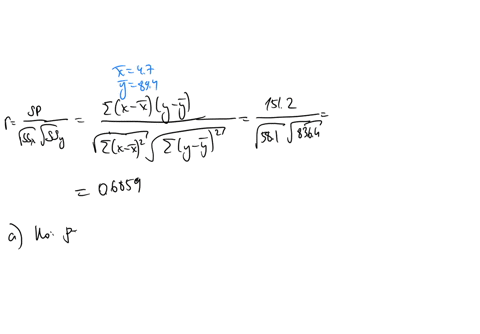 x̄ = 4.7
ȳ = 89.4
r = SP / √SSx √SSy = Σ(x-x̄)(y-ȳ) / √Σ(x-x̄)² √Σ(y-ȳ)² = 151.2 / √58.1 √836.4 =
= 0.6859
a) H₀: ρ